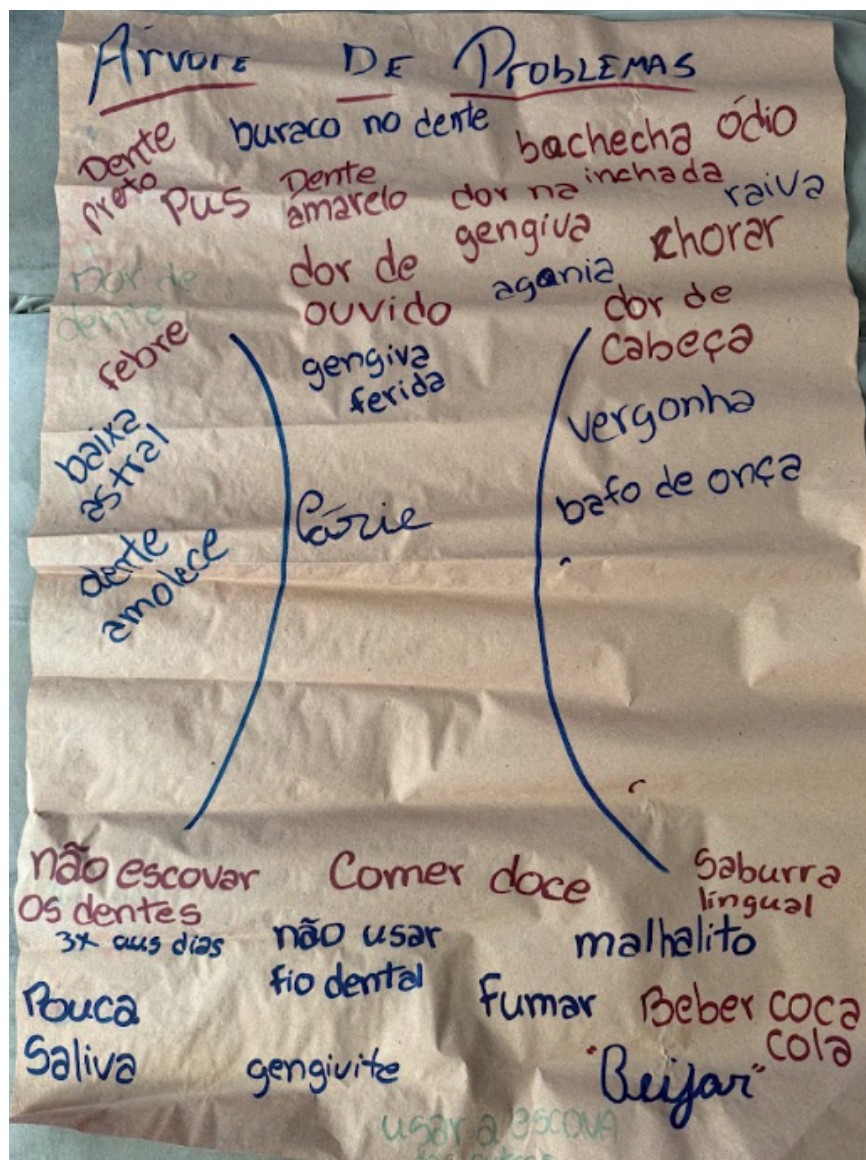 Árvore De Problemas
Dente
preto
buraco no dente
bachecha
inchada
ódio
pus
Dente
amarelo
dor na
gengiva
raiva
chorar
dor de
dente
dor de
ouvido
agonia
dor de
cabeça
febre
gengiva
ferida
vergonha
baixa
astral
Cárie
bafo de onça
dente
amolece
não escovar
os dentes
3x aus dias
Comer doce
Saburra
lingual
não usar
fio dental
malhalito
Pouca
Saliva
fumar
Beber coca
cola
gengivite
"Beijar"
usar a escova